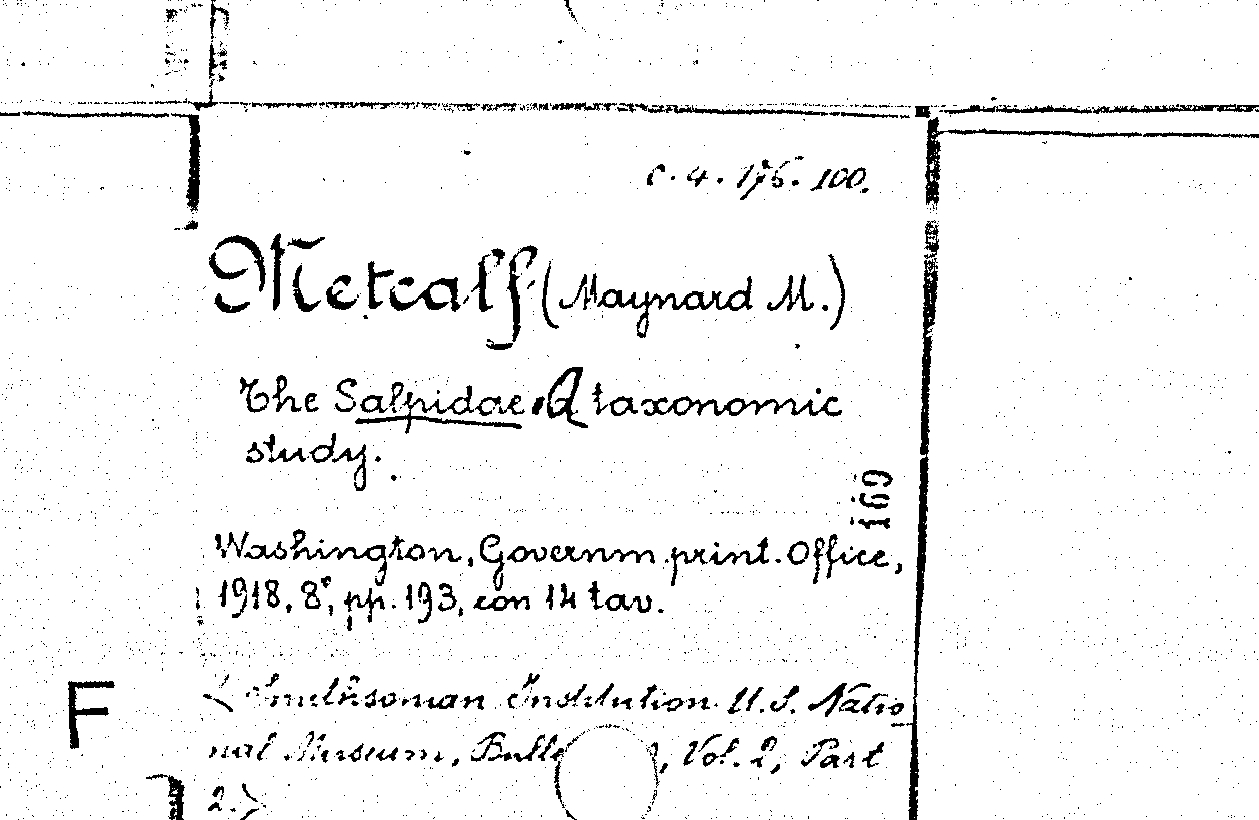 C. 4. 176. 100.
Metcalf (Maynard M.)
The Salpidae. A taxonomic
study.
169
Washington, Governm. print. Office,
1918, 8°, pp. 193, con 14 tav.
F
< Smithsonian Institution. U. S. Natio-
nal Museum, , Vol. 2, Part
2.>